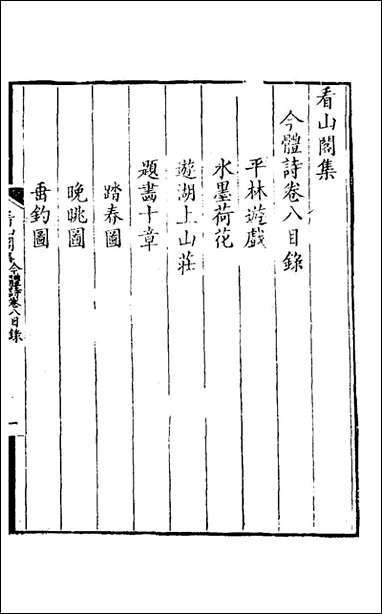 看山閣集
今體詩卷八目錄
平林遊戲
水墨荷花
遊湖上山莊
題畵十章
踏春圖
晚眺圖
垂釣圖
看山閣集今體詩卷八目錄 一